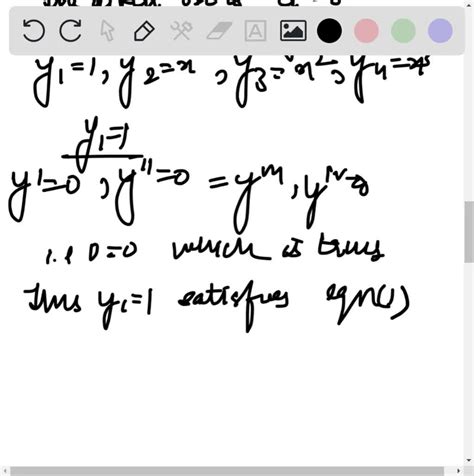 y₁=1, y₂=x, y₃=x², y₄=x³
y₁=1
y'=0, y''=0 = y''', y^IV=0
i.e 0=0 which is true
Thus y₁=1 satisfies eqn(1)